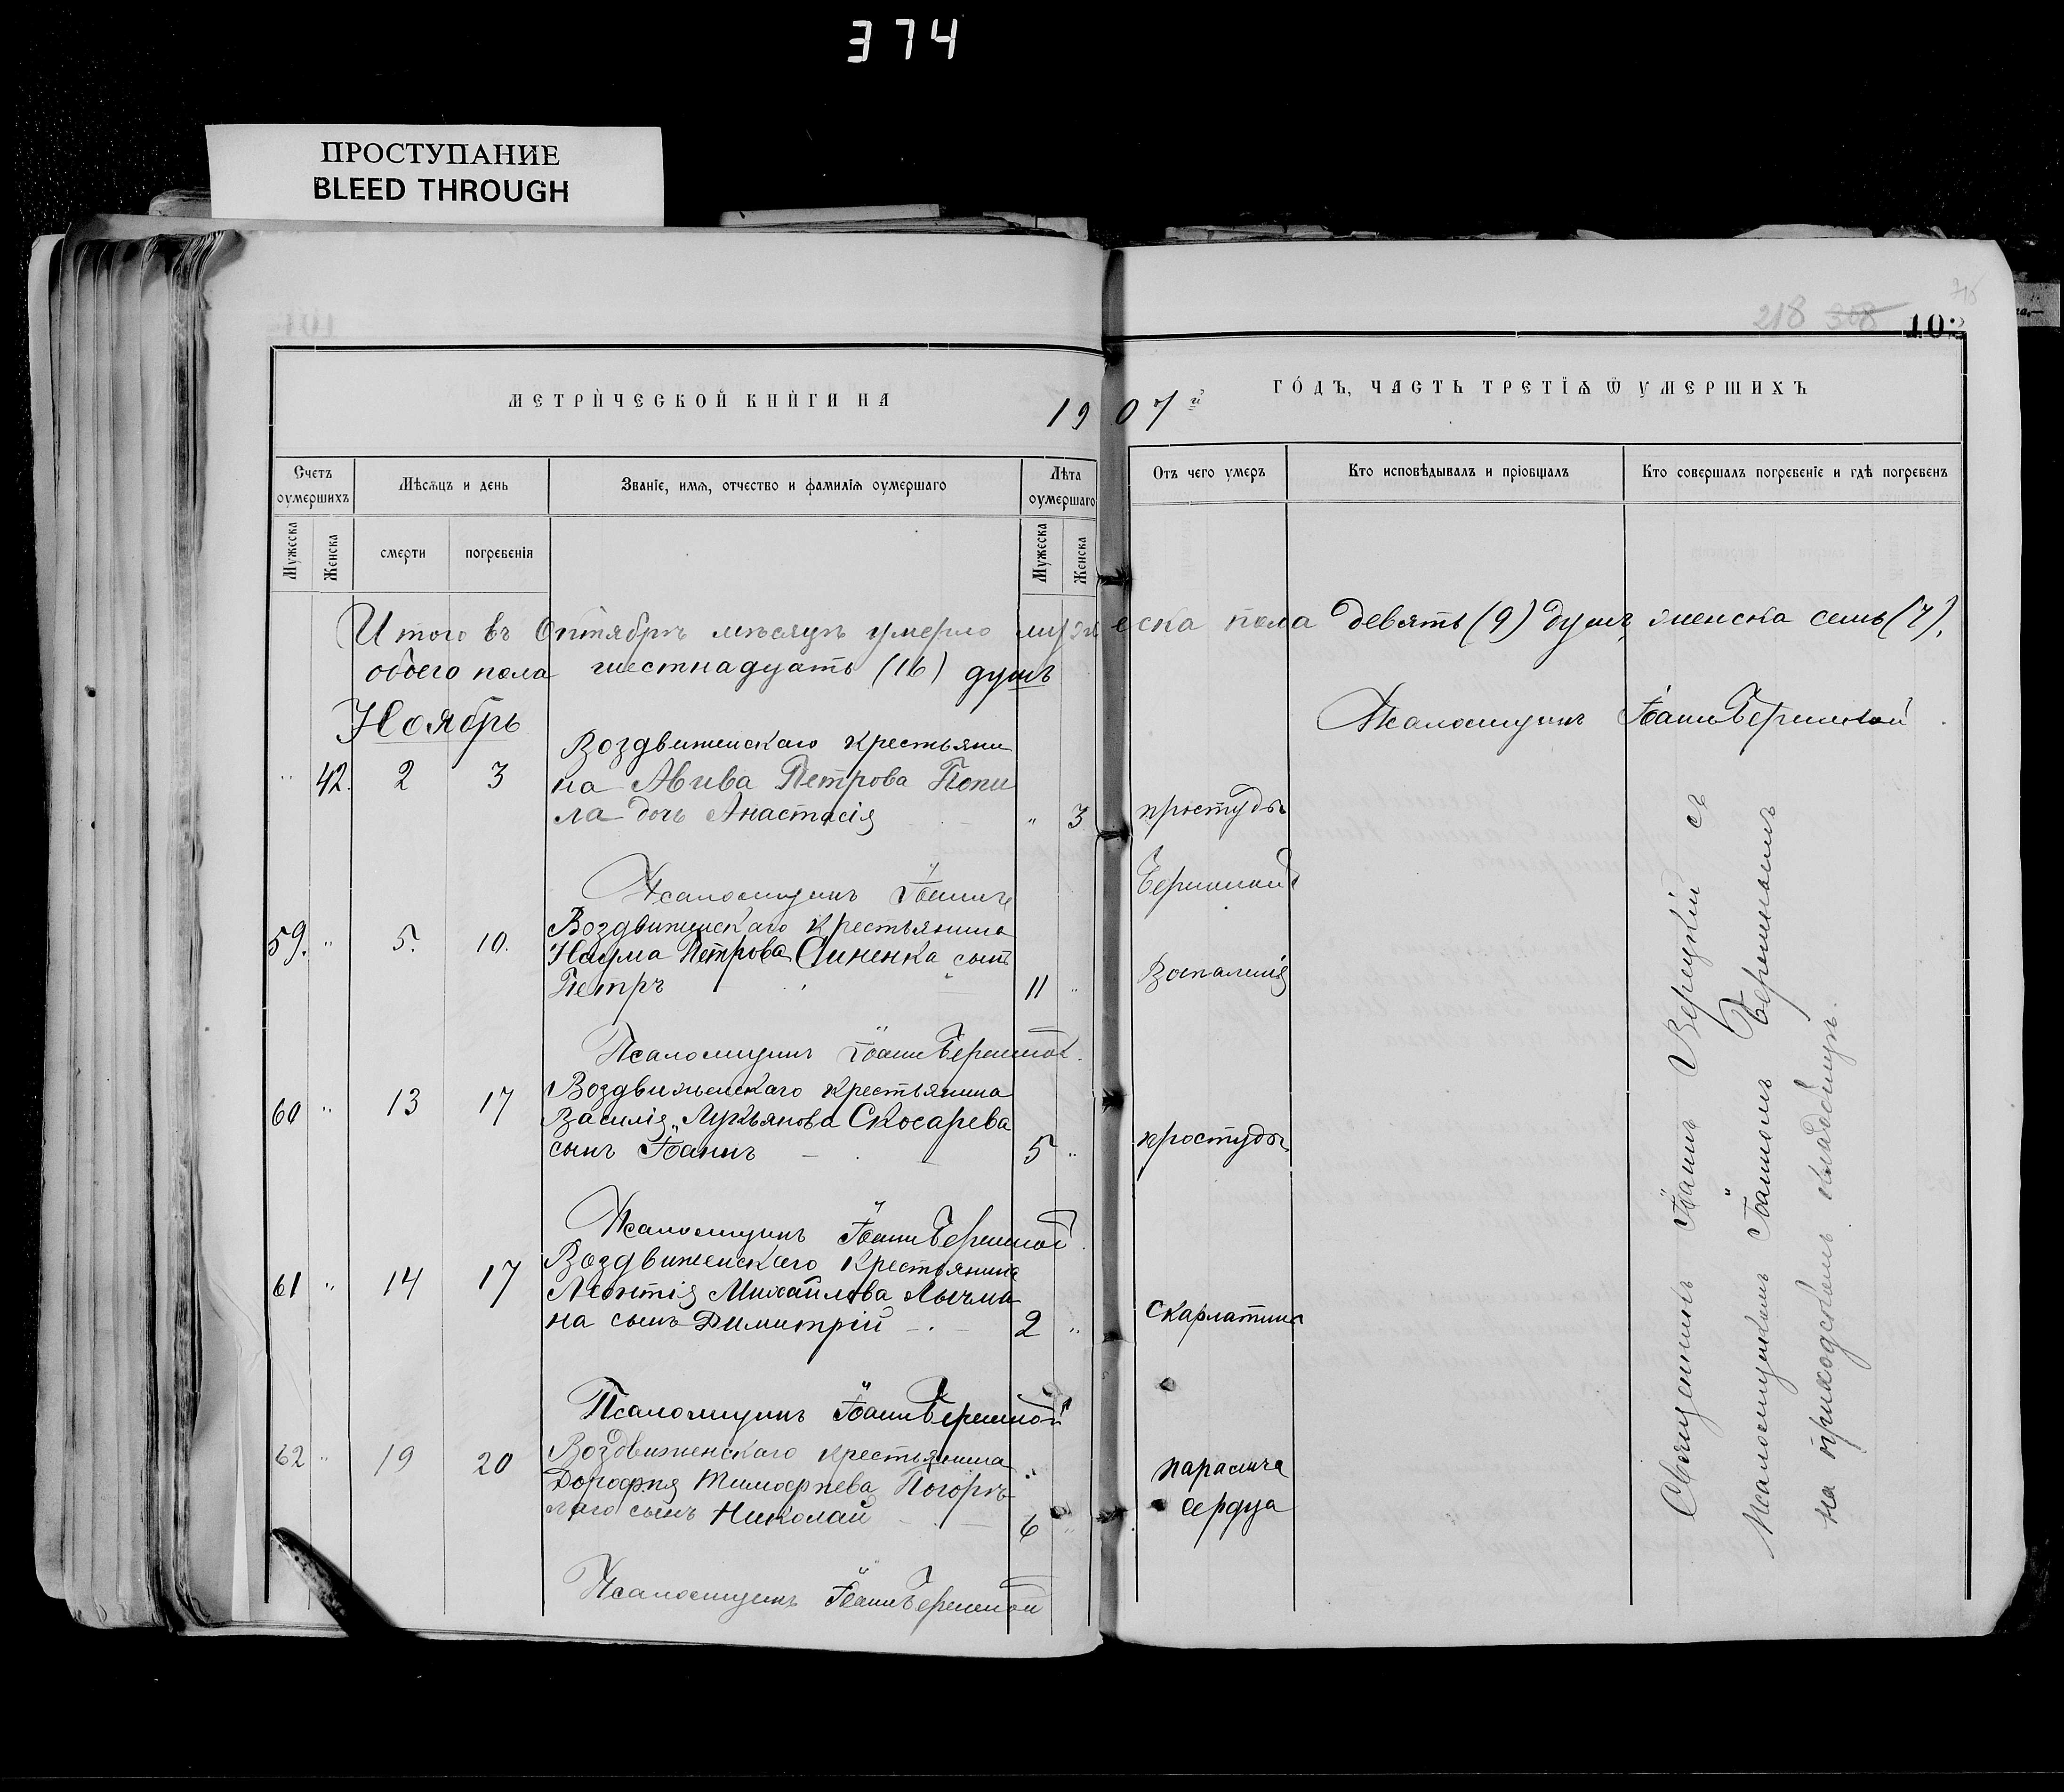 374
ПРОСТУПАНИЕ
BLEED THROUGH
218 308
103
МЕТРИЧЕСКОЙ КНИГИ НА 1907й ГОДЪ, ЧАСТЬ ТРЕТІѦ Ѿ УМЕРШИХЪ
Счетъ оумершихъ
Мѣсѧцъ и день
Званіе, имѧ, отчество и фамиліѧ оумершаго
Лѣта оумершаго
Отъ чего умеръ
Кто исповѣдывалъ и пріобщалъ
Кто совершалъ погребеніе и гдѣ погребенъ
Мужеска
Женска
смерти
погребенія
Мужеска
Женска
Итого въ Октябрѣ мѣсяцѣ умерло мужеска пола девять (9) душъ, женска семь (7),
обоего пола шестнадцать (16) душъ
Псаломщикъ Іоаннъ Бережной
Ноябрь
Воздвиженскаго крестьяни
" 42. 2 3 на Авива Петрова Попи
ла дочь Анастасія " 3 простуды
Псаломщикъ Іоаннъ Бережной
Воздвиженскаго крестьянина
59. " 5. 10. Наума Петрова Синенка сынъ
Петръ 11 " Воспаленія
Псаломщикъ Іоаннъ Бережной.
Воздвиженскаго крестьянина
60 " 13 17 Василія Лукьянова Скосарева
сынъ Іоаннъ 5 " простуды
Псаломщикъ Іоаннъ Бережной.
Воздвиженскаго крестьянина
61 " 14 17 Леонтія Михайлова Лычма
на сынъ Димитрій 2 " Скарлатина
Псаломщикъ Іоаннъ Бережной
62 " 19 20 Воздвиженскаго крестьянина
Дорофея Тимофеева Погорѣ
лаго сынъ Николай 6 " паралича
сердца
Псаломщикъ Іоаннъ Бережной
Священникъ Іоаннъ Верецкій съ
Псаломщикомъ Іоанномъ Бережнымъ
на приходскомъ кладбищѣ.